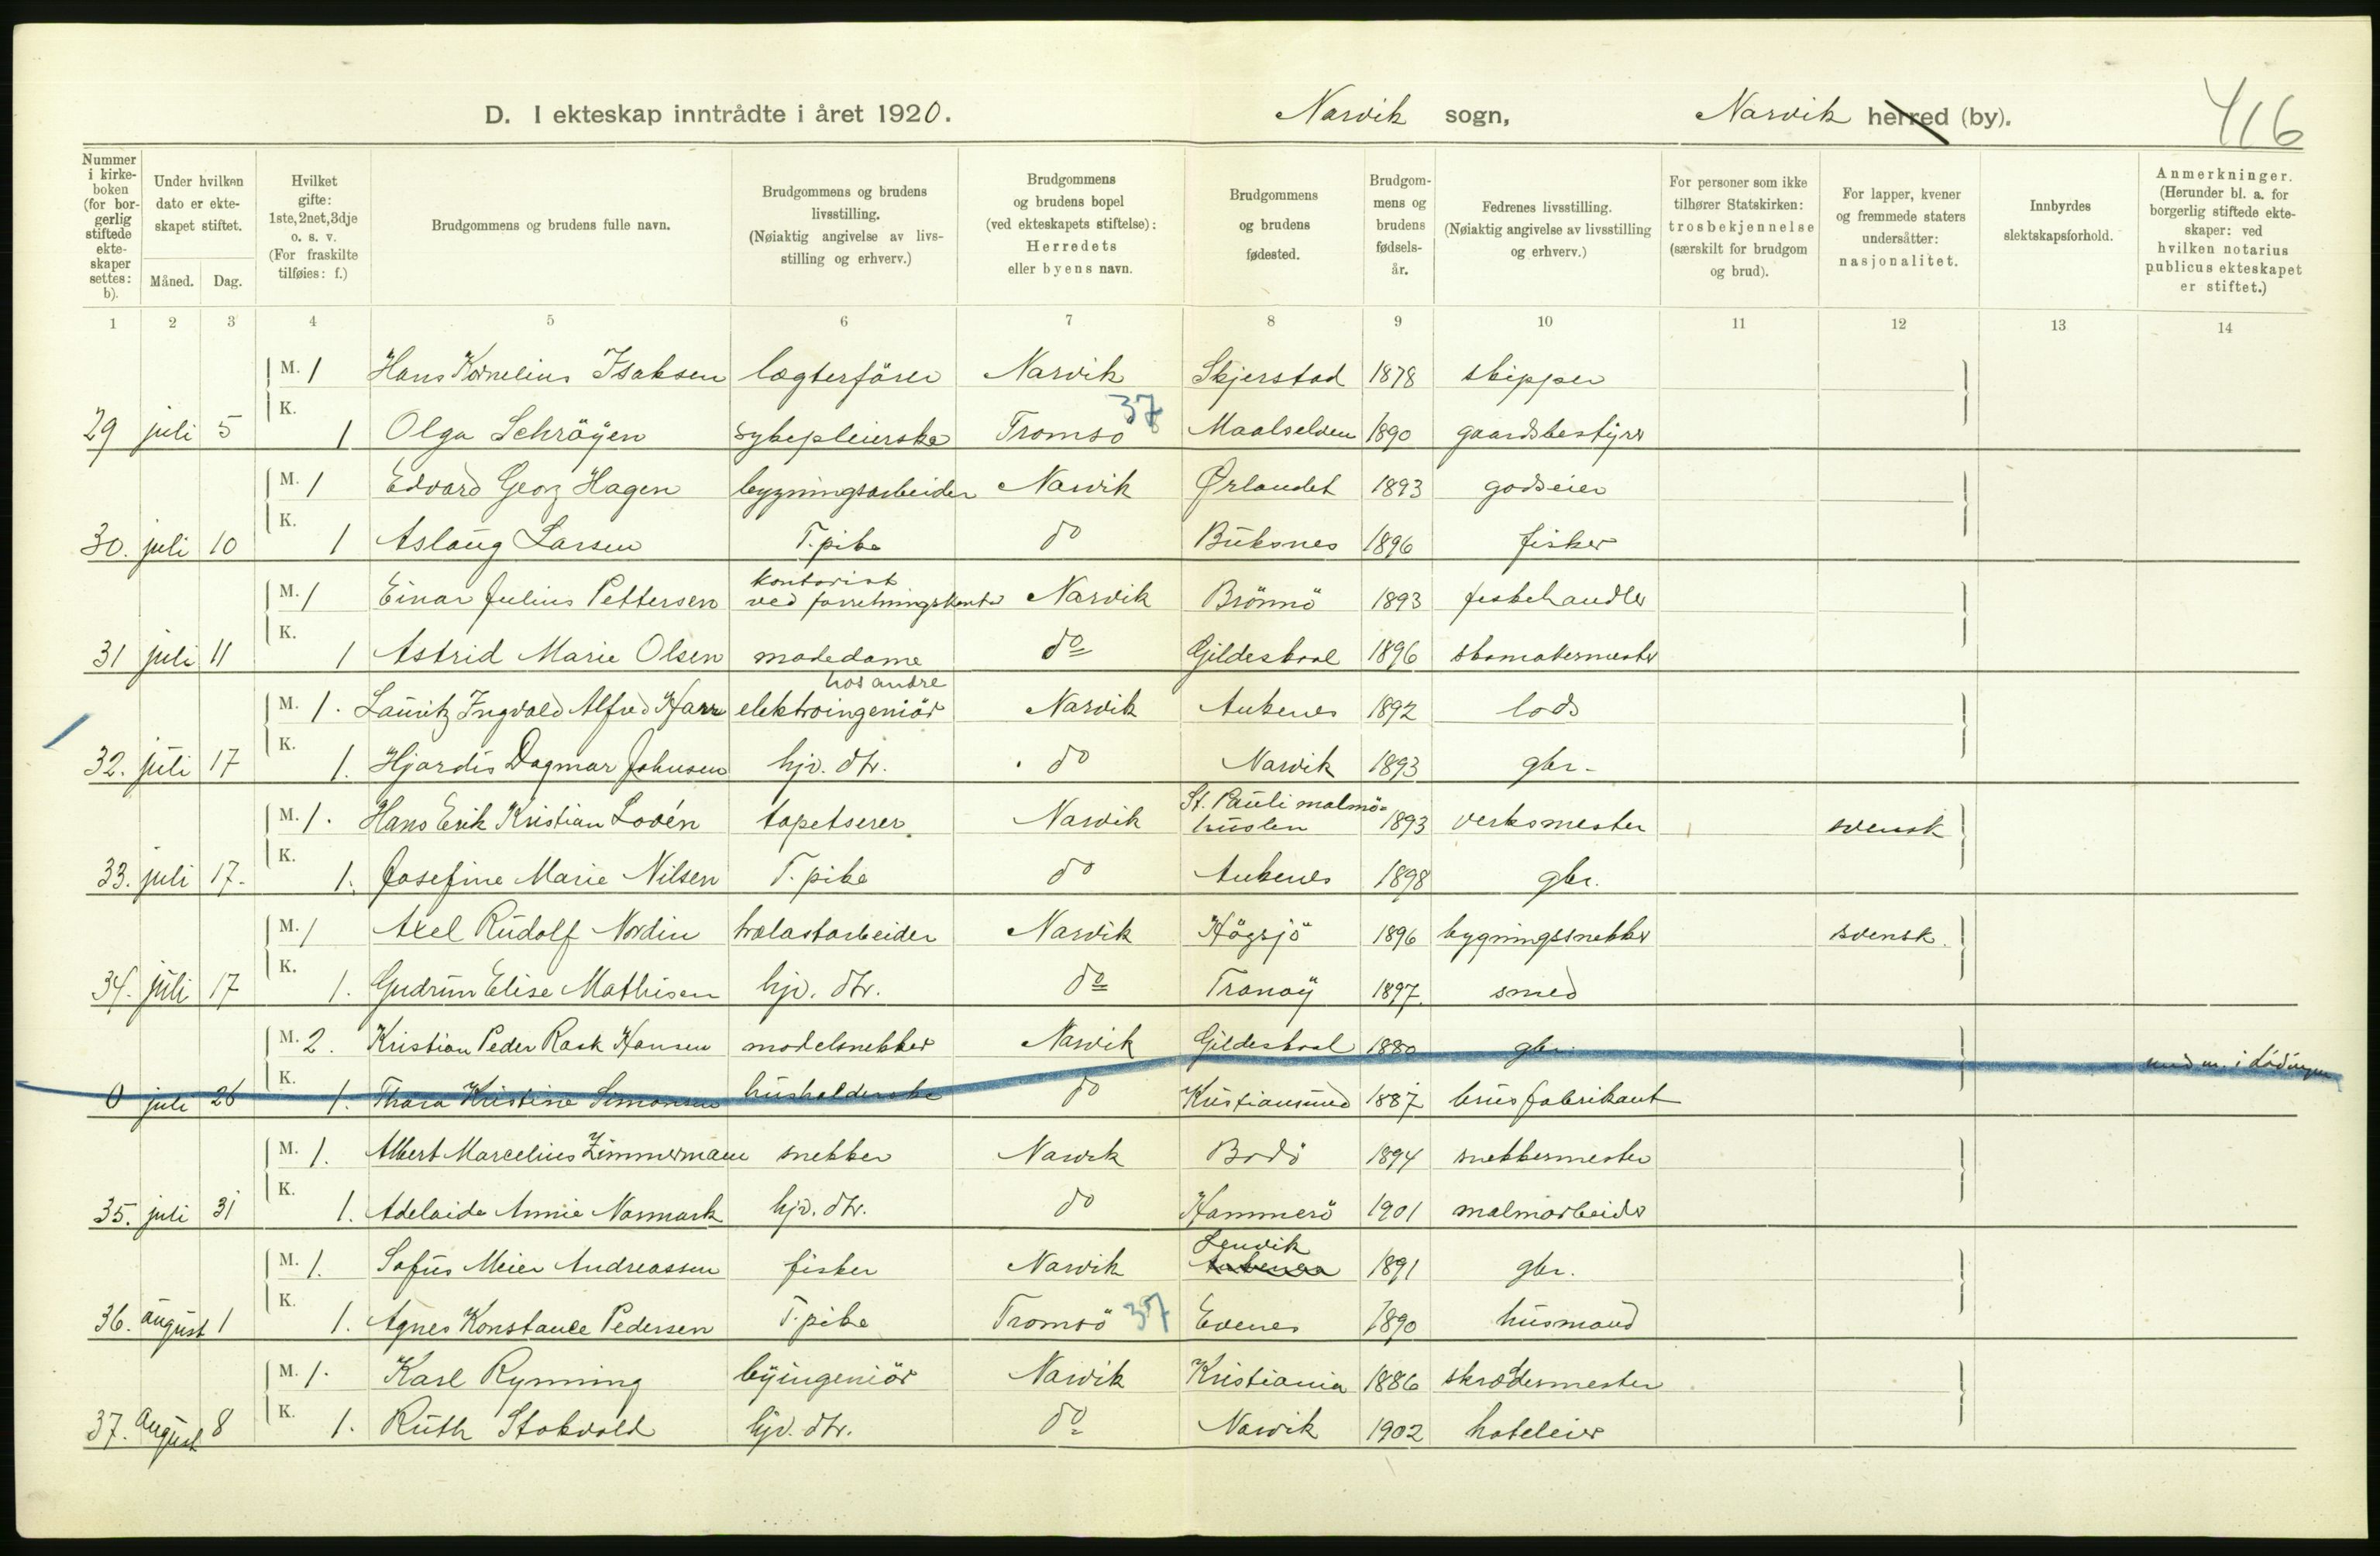 D. I ekteskap inntrådte i året 1920. Narvik sogn, Narvik herred (by). 416
Nummer i kirke-boken (for bor-gerlig stiftede ekte-skaper settes: b).
Under hvilken dato er ekte-skapet stiftet.
Måned. Dag.
Hvilket gifte: 1ste, 2net, 3dje o. s. v. (For fraskilte tilføies: f.)
Brudgommens og brudens fulle navn.
Brudgommens og brudens livsstilling. (Nøiaktig angivelse av livs-stilling og erhverv.)
Brudgommens og brudens bopel (ved ekteskapets stiftelse): Herredets eller byens navn.
Brudgommens og brudens fødested.
Brudgom-mens og brudens fødsels-år.
Fedrenes livsstilling. (Nøiaktig angivelse av livsstilling og erhverv.)
For personer som ikke tilhører Statskirken: trosbekjennelse (særskilt for brudgom og brud).
For lapper, kvener og fremmede staters undersåtter: nasjonalitet.
Innbyrdes slektskapsforhold.
Anmerkninger. (Herunder bl. a. for borgerlig stiftede ekte-skaper: ved hvilken notarius publicus ekteskapet er stiftet.)
1 2 3 4 5 6 7 8 9 10 11 12 13 14
M. 1 Hans Kornelius Isaksen lægterförer Narvik Skjerstad 1878 skipper
37
29 juli 5 K. 1 Olga Schröyen sykepleierske Tromsö Maalselven 1890 gaardsbestyrer
M. 1 Edvard Georg Hagen bygningsarbeider Narvik Ørlandet 1893 godseier
30. juli 10 K. 1 Aslaug Larsen T. pike do Buksnes 1896 fisker
kontorist
M. 1 Einar Julius Pettersen ved forretningskontor Narvik Brönnö 1893 feskehandler
31 juli 11 K. 1 Astrid Marie Olsen motedame do Gildeskaal 1896 skomakermester
hos andre
M. 1. Lauritz Ingvald Alfred Harr elektroingeniör Narvik Ankenes 1892 lods
32. juli 17 K. 1. Hjørdis Dagmar Johnsen hjv. dtr. do Narvik 1893 gbr.
St. Pauli malmö=
M. 1. Hans Erik Kristian Lovén tapetserer. Narvik huslen 1893 verksmester svensk
33. juli 17. K. 1. Josefine Marie Nilsen T. pike do Ankenes 1898 gbr.
M. 1 Axel Rudolf Nordin trælastarbeider Narvik Högsjö 1896 bygningssnekker svensk.
34. juli 17 K. 1. Gudrun Elise Mathisen hjv. dtr. do Tranöy 1897. smed
M. 2. Kristian Peder Rask Hansen modelsnekker Narvik Gildeskaal 1880 gbr.
i Lödingen
0 juli 26 K. 1. Thora Kristine Simonsen husholderske do Kristiansund 1887 brusfabrikant
M. 1. Albert Marcelius Zimmermann snekker Narvik Bodö 1894 snekkermester
35. juli 31 K. 1. Adelaide Annie Normark hjv. dtr. do Hammerö 1901 malmarbeider
Lenvik
M. 1. Sofus Meier Andreassen fisker Narvik Ankenes 1891 gbr.
36. august 1 K. 1. Agnes Konstance Pedersen T. pike Tromsö 37 Evenes 1890 husmand
M. 1. Karl Rynning byingeniör Narvik Kristiania 1886 skrædermester
37. August 8 K. 1. Ruth Stokvold hjv. dtr. do Narvik 1902 hoteleier